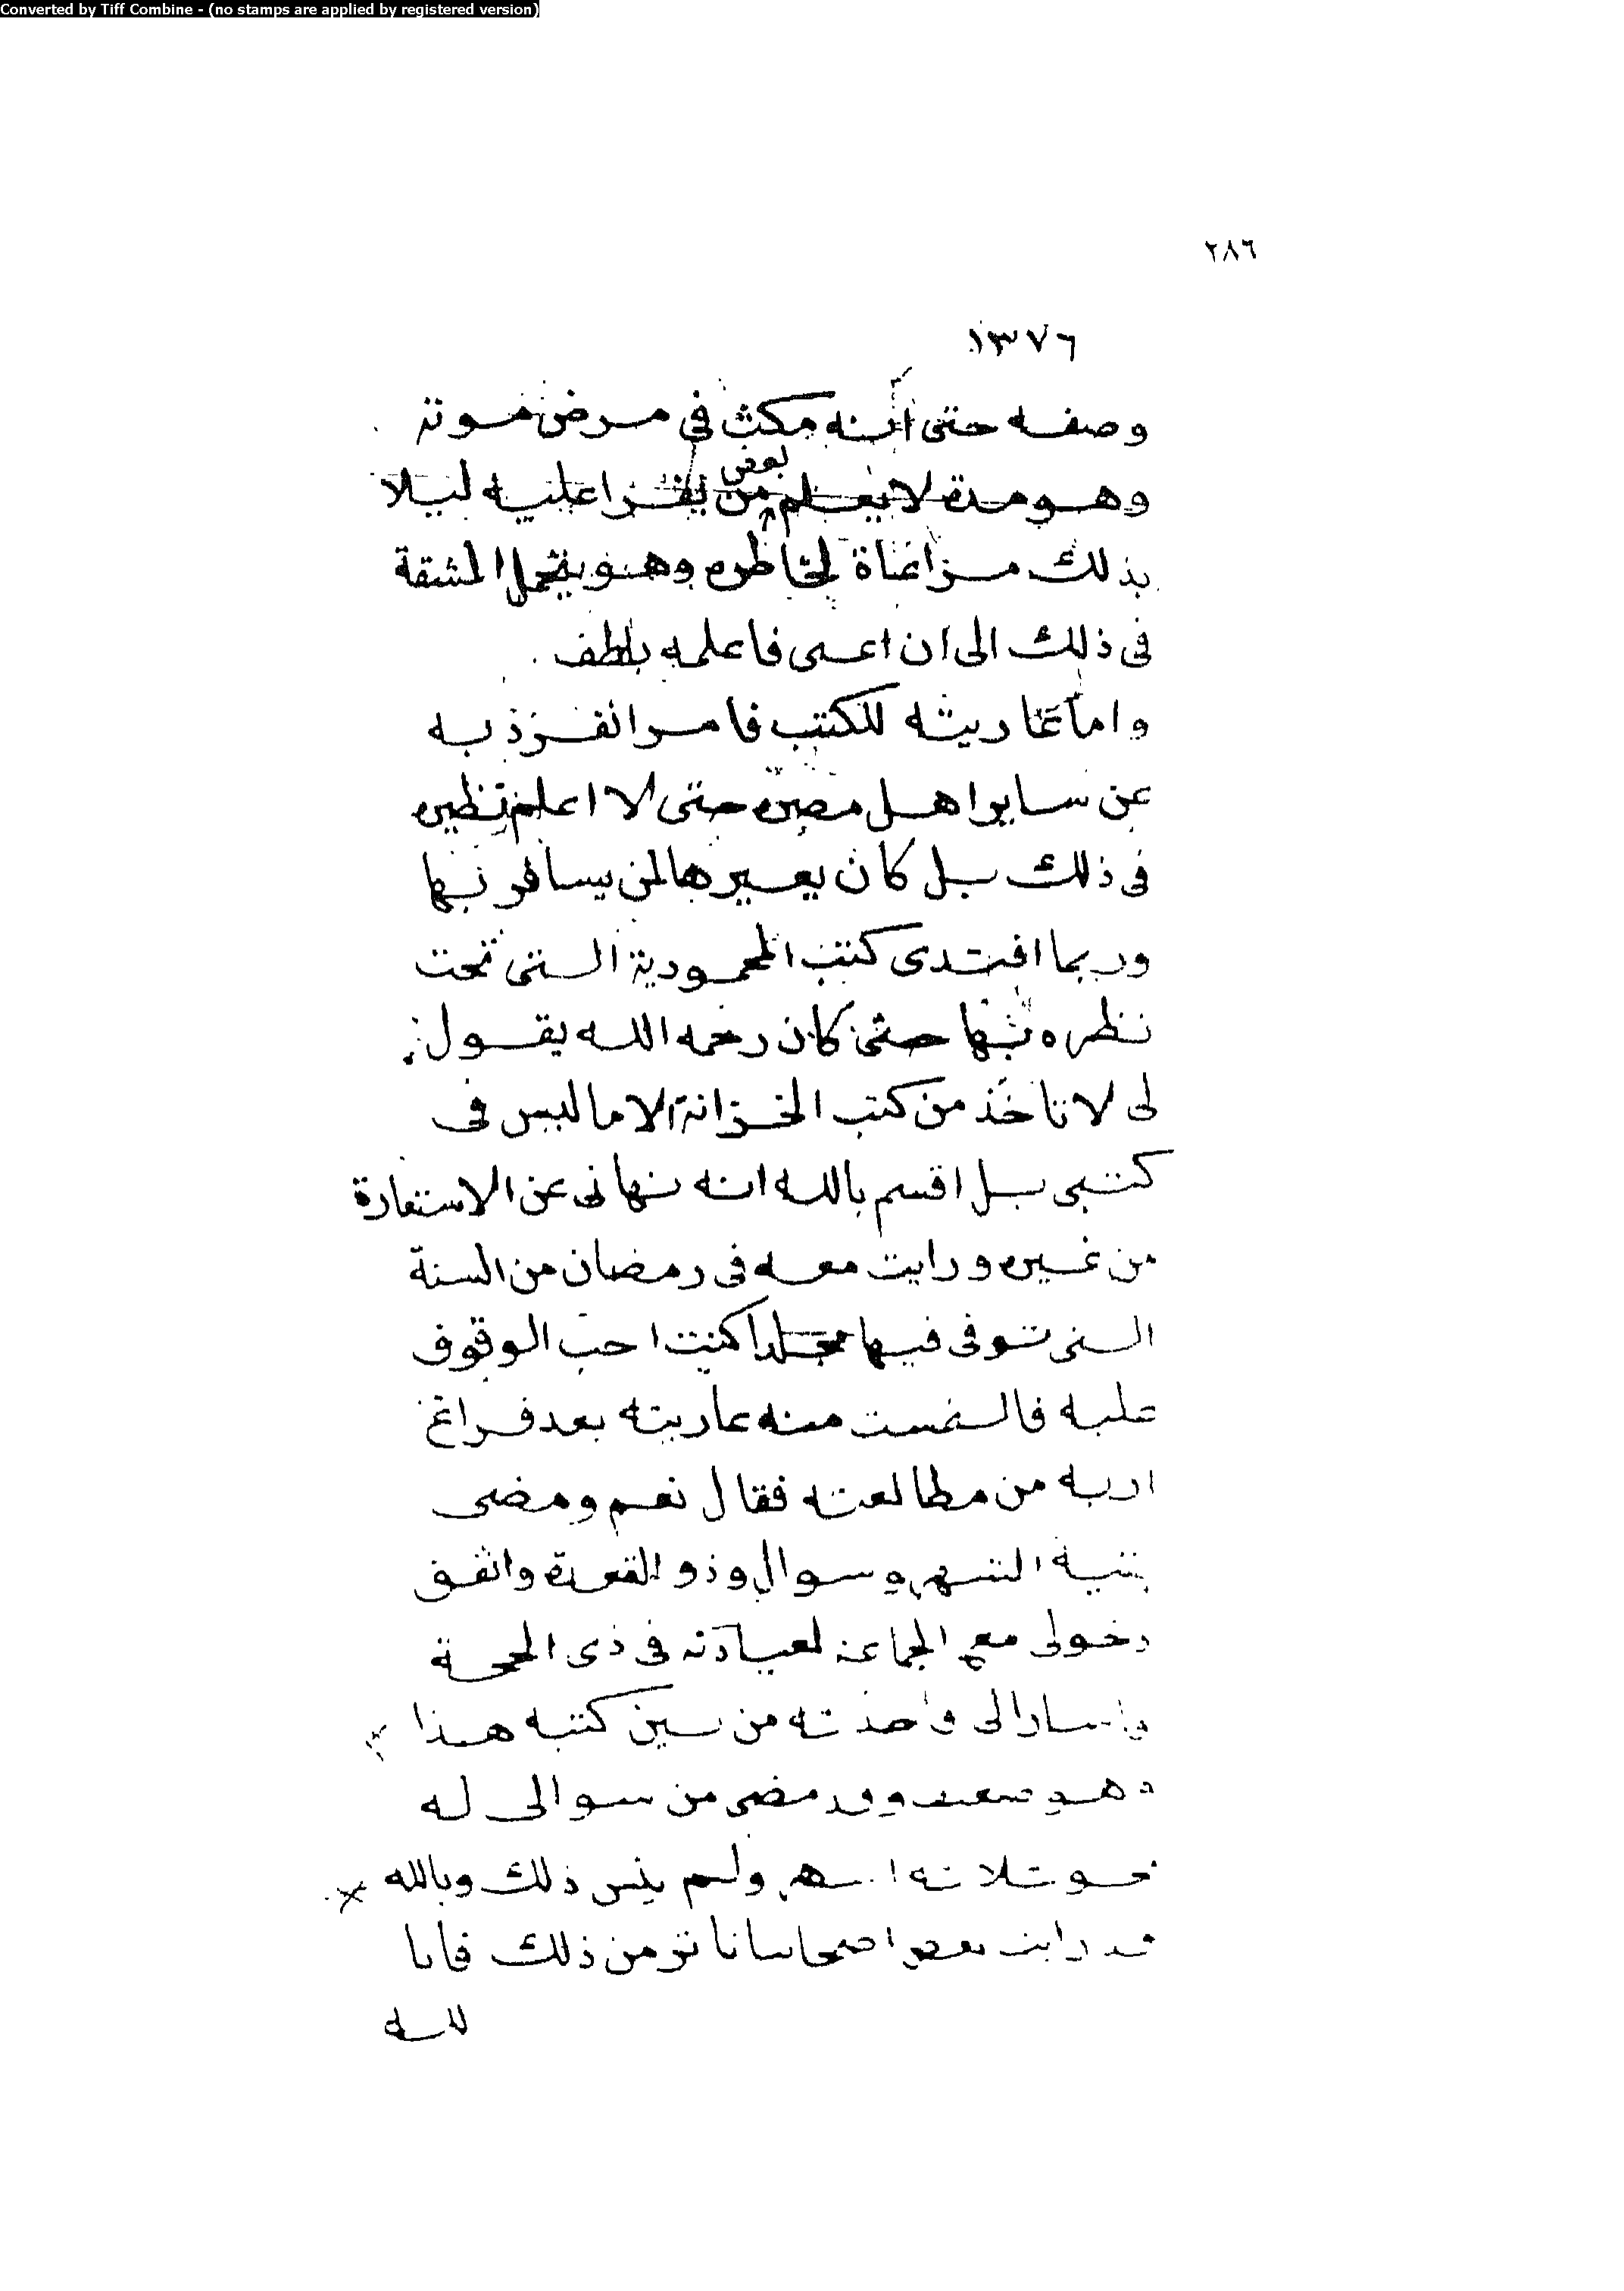 Converted by Tiff Combine - (no stamps are applied by registered version)
٢٨٦
١٣٧٦
وصفه حتى أنه مكث في مرض موته
وهو مدة لا يعلم بعض من يقرا عليه ليلا
بذلك مراعاة لخاطره وهو يتحمل المشقة
فى ذلك الى ان اعيى فاعلمه بلطف
واما عاريته للكتب فامر انفرد به
عن ساير اهل مصره حتى لا اعلم نظيره
فى ذلك بل كان يعيرها لمن يسافر بها
وربما افتدى كتب المحمودية التى تحت
نظره بها حتى كان رحمه الله يقول
لى لا تاخذ من كتب الخزانة الا ما ليس فى
كتبى بل اقسم بالله انه نهانى عن الاستعارة
من غيره ورايت معه فى رمضان من السنة
التى توفى فيها مجلدا كنت احب الوقوف
عليه فالتمست منه عاريته بعد فراغ
اربه من مطالعته فقال نعم ومضى
بقية الشهر وسوال وذو القعدة واتفق
دخولى مع الجماعة لعيادته فى ذى الحجة
فاسار الى واخذته من بين كتبه هذا
وهو ضعيف وقد مضى من سوالى له
نحو ثلاثه اشهر ولم ينس ذلك وبالله
قد رايت بعض اصحابنا ناثر من ذلك فانا
لله